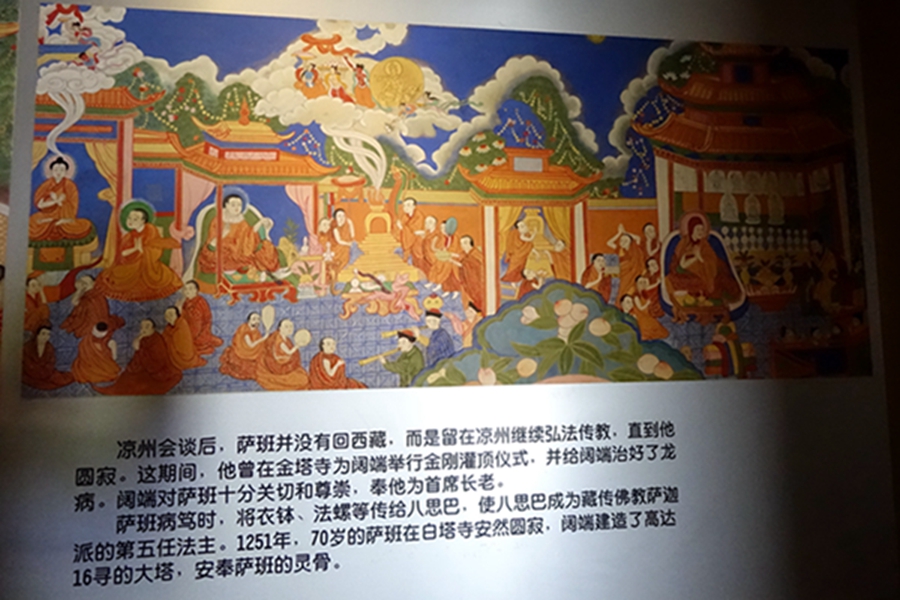 凉州会谈后，萨班并没有回西藏，而是留在凉州继续弘法传教，直到他
圆寂。这期间，他曾在金塔寺为阔端举行金刚灌顶仪式，并给阔端治好了龙
病。阔端对萨班十分关切和尊崇，奉他为首席长老。
萨班病笃时，将衣钵、法螺等传给八思巴，使八思巴成为藏传佛教萨迦
派的第五任法主。1251年，70岁的萨班在白塔寺安然圆寂，阔端建造了高达
16寻的大塔，安奉萨班的灵骨。